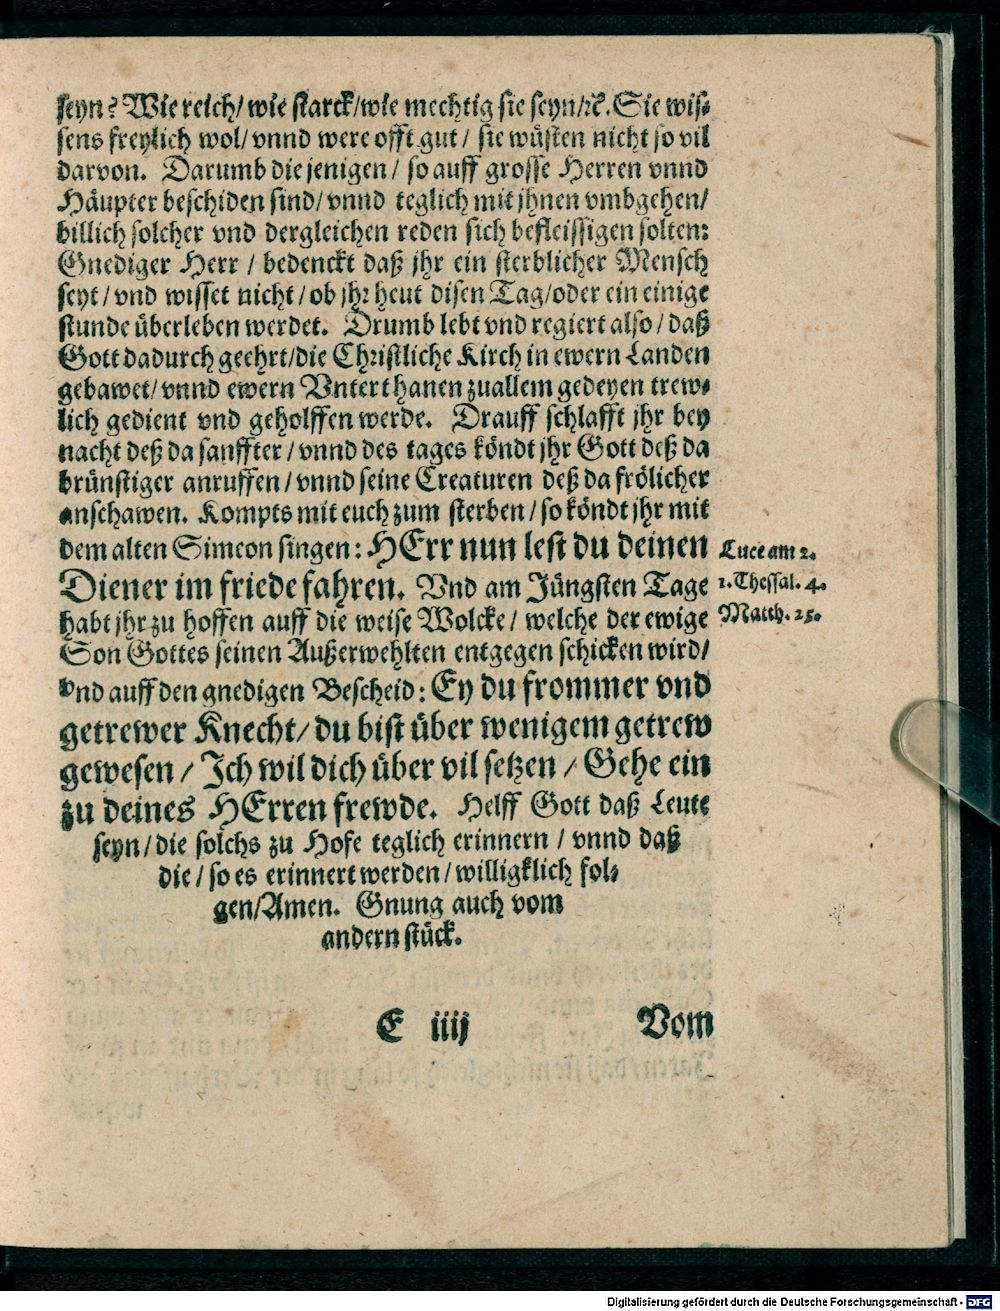 seyn? Wie reich/ wie starck/ wie mechtig sie seyn/ ꝛc. Sie wis⸗
sens freylich wol/ vnnd were offt gut / sie wüsten nicht so vil
darvon. Darumb die jenigen / so auff grosse Herren vnnd
Häupter beschiden sind/ vnnd teglich mit jhnen vmbgehen/
billich solcher vnd dergleichen reden sich befleissigen solten:
Gnediger Herr / bedenckt daß jhr ein sterblicher Mensch
seyt / vnd wisset nicht / ob jhr heut disen Tag/ oder ein einige
stunde überleben werdet. Drumb lebt vnd regiert also / daß
Gott dadurch geehrt/ die Christliche Kirch in ewern Landen
gebawet/ vnnd ewern Vnterthanen zu allem gedeyen trew⸗
lich gedient vnd geholffen werde. Drauff schlafft jhr bey
nacht deß da sanffter / vnnd des tages köndt jhr Gott deß da
brünstiger anruffen / vnnd seine Creaturen deß da frölicher
anschawen. Kompts mit euch zum sterben / so köndt jhr mit
dem alten Simeon singen: HErr nun lest du deinen Luce am 2.
Diener im friede fahren. Vnd am Jüngsten Tage 1. Thessal. 4.
habt jhr zu hoffen auff die weise Wolcke / welche der ewige Matth. 25.
Son Gottes seinen Außerwehlten entgegen schicken wird/
vnd auff den gnedigen Bescheid: Ey du frommer vnd
getrewer Knecht/ du bist über wenigem getrew
gewesen / Ich wil dich über vil setzen / Gehe ein
zu deines HErren frewde. Helff Gott daß Leute
seyn / die solchs zu Hofe teglich erinnern / vnnd daß
die / so es erinnert werden / willigklich fol⸗
gen/ Amen. Gnung auch vom
andern stück.
E iiij Vom
Digitalisierung gefördert durch die Deutsche Forschungsgemeinschaft - DFG